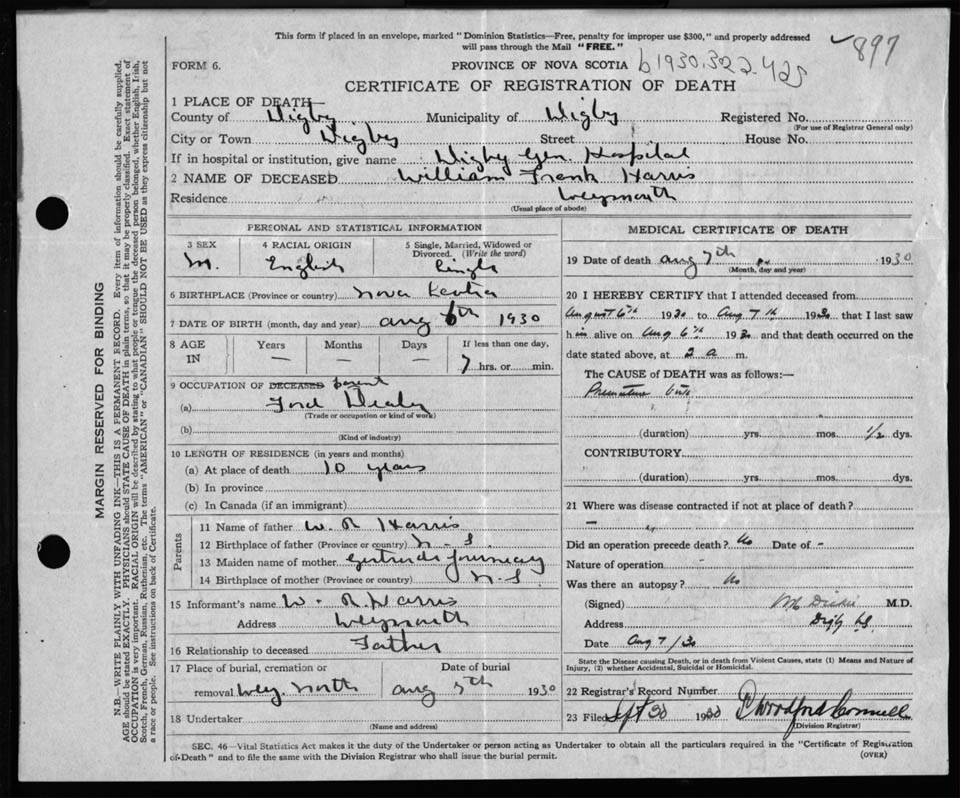 This form if placed in an envelope, marked "Dominion Statistics—Free, penalty for improper use $300," and properly addressed
will pass through the Mail "FREE."
897
FORM 6.
PROVINCE OF NOVA SCOTIA
b1930.322.425
CERTIFICATE OF REGISTRATION OF DEATH
1 PLACE OF DEATH—
County of Digby Municipality of Digby Registered No.
(For use of Registrar General only)
City or Town Digby Street House No.
If in hospital or institution, give name Digby Gen. Hospital
2 NAME OF DECEASED William Frank Harris
Residence Weymouth
(Usual place of abode)
PERSONAL AND STATISTICAL INFORMATION
3 SEX 4 RACIAL ORIGIN 5 Single, Married, Widowed or Divorced. (Write the word)
M. English Single
6 BIRTHPLACE (Province or country) Nova Scotia
7 DATE OF BIRTH (month, day and year) Aug 6th 1930
8 AGE IN Years Months Days If less than one day,
— — — 7 hrs. or min.
9 OCCUPATION OF DECEASED parent
(a) Ford Dealer
(Trade or occupation or kind of work)
(b)
(Kind of industry)
10 LENGTH OF RESIDENCE (in years and months)
(a) At place of death 10 years
(b) In province
(c) In Canada (if an immigrant)
Parents
11 Name of father W R Harris
12 Birthplace of father (Province or country) N.S.
13 Maiden name of mother Gertrude
14 Birthplace of mother (Province or country) N.S
15 Informant's name W. R Harris
Address Weymouth
16 Relationship to deceased Father
17 Place of burial, cremation or Date of burial
removal Wey. North Aug 7th 1930
18 Undertaker
(Name and address)
MEDICAL CERTIFICATE OF DEATH
19 Date of death Aug 7th 1930
(Month, day and year)
20 I HEREBY CERTIFY that I attended deceased from
August 6th 1930 to Aug 7th 1930 that I last saw
him alive on Aug 6th 1930 and that death occurred on the
date stated above, at 2 a m.
The CAUSE of DEATH was as follows:—
Premature birth
(duration) yrs. mos. 1/2 dys.
CONTRIBUTORY
(duration) yrs. mos. dys.
21 Where was disease contracted if not at place of death?
—
Did an operation precede death? No Date of -
Nature of operation -
Was there an autopsy? No
(Signed) M Dickie M.D.
Address Digby N.S.
Date Aug 7/30
State the Disease causing Death, or in death from Violent Causes, state (1) Means and Nature of
Injury, (2) whether Accidental, Suicidal or Homicidal.
22 Registrar's Record Number
23 Filed Sept 30 1930
(Division Registrar)
SEC. 46—Vital Statistics Act makes it the duty of the Undertaker or person acting as Undertaker to obtain all the particulars required in the "Certificate of Registration
of Death" and to file the same with the Division Registrar who shall issue the burial permit.
(OVER)
MARGIN RESERVED FOR BINDING
N.B.—WRITE PLAINLY WITH UNFADING INK—THIS IS A PERMANENT RECORD. Every item of information should be carefully supplied.
AGE should be stated EXACTLY. PHYSICIANS should STATE CAUSE OF DEATH in plain terms, so that it may be properly classified. Exact statement of
OCCUPATION is very important. RACIAL ORIGIN will be described by stating to what people or tongue the deceased person belonged, whether English, Irish,
Scotch, French, German, Russian, Ruthenian, etc. The terms "AMERICAN" or "CANADIAN" SHOULD NOT BE USED as they express citizenship but not
a race or people. See instructions on back of Certificate.